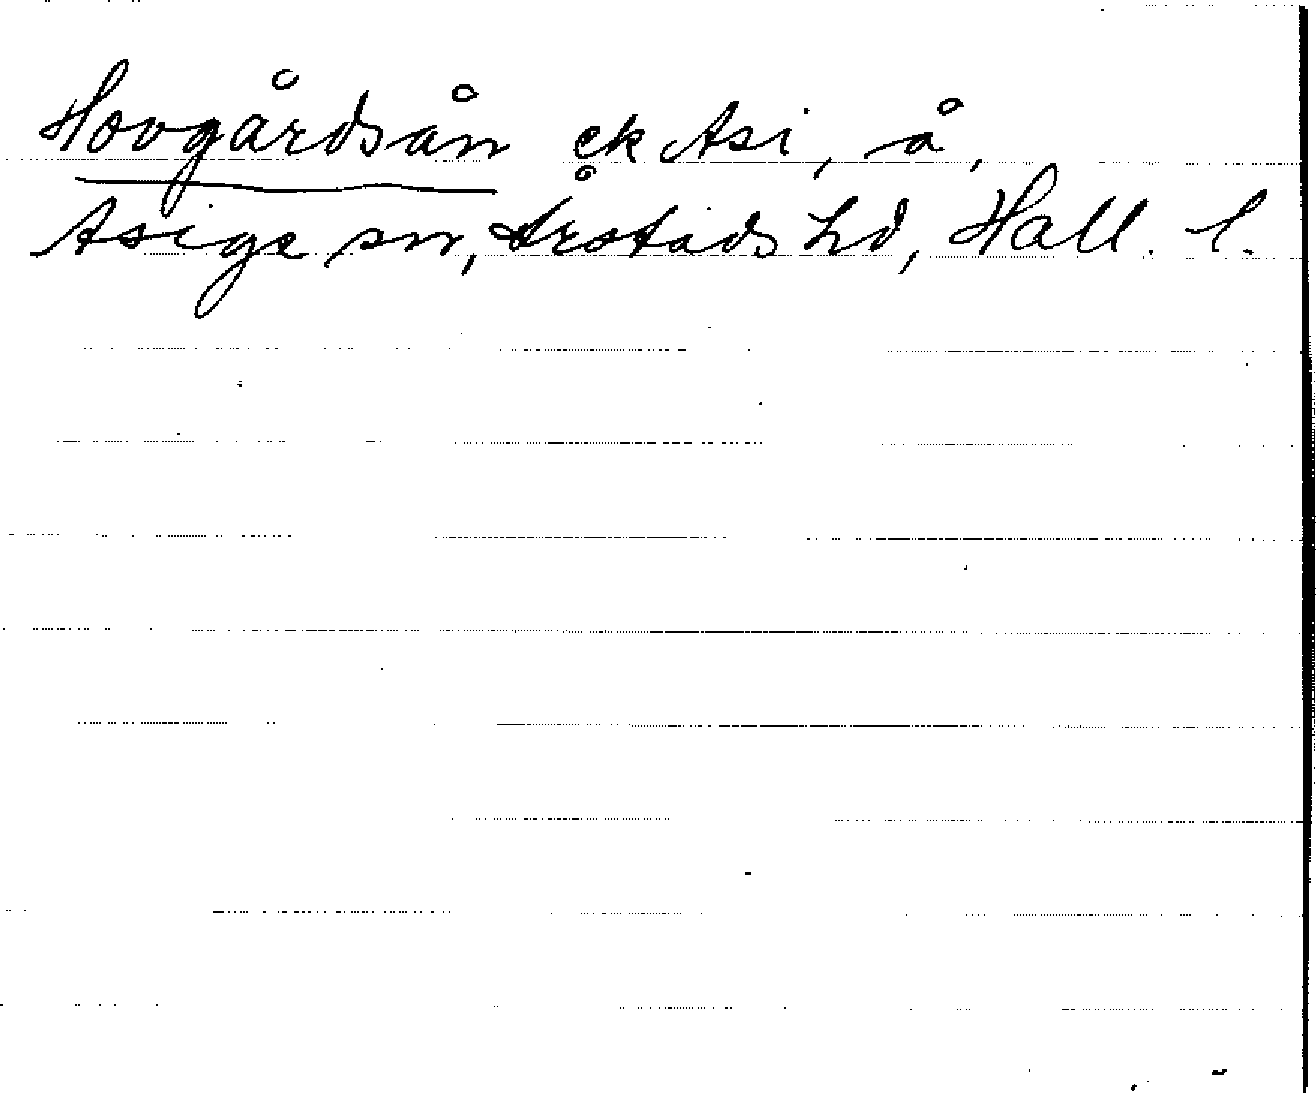 Hovgårdsån ek Asi, å,
Asige sn, Årstads hd, Hall. l.